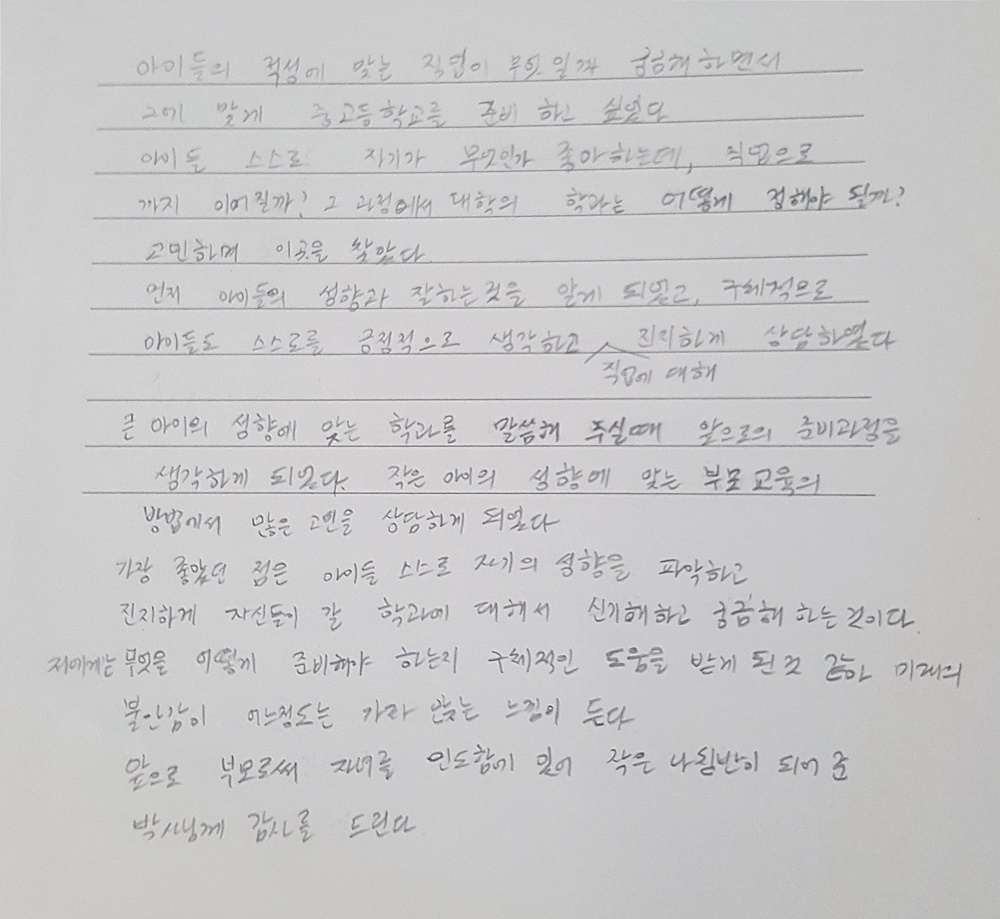 아이들의 적성에 맞는 직업이 무엇일까 궁금해하면서
그에 맞게 중고등학교를 준비 하고 싶었다
아이들 스스로 자기가 무엇인가 좋아하는데, 직업으로
까지 이어질까? 그 과정에서 대학의 학과는 어떻게 정해야 될까?
고민하며 이곳을 찾았다
먼저 아이들의 성향과 잘하는것을 알게 되었고, 구체적으로
아이들도 스스로를 긍정적으로 생각하고 진지하게 상담하였다
직업에 대해
큰 아이의 성향에 맞는 학과를 말씀해 주실때 앞으로의 준비과정을
생각하게 되었다. 작은 아이의 성향에 맞는 부모 교육의
방법에서 많은 고민을 상담하게 되었다
가장 좋았던 점은 아이들 스스로 자기의 성향을 파악하고
진지하게 자신들이 갈 학과에 대해서 신기해하고 궁금해 하는것이다.
저에게는 무엇을 어떻게 준비해야 하는지 구체적인 도움을 받게 된것 미래의
불안감이 어느정도는 가라 앉는 느낌이 든다
앞으로 부모로써 자녀를 인도함에 있어 작은 나침반이 되어 준
감사를 드린다